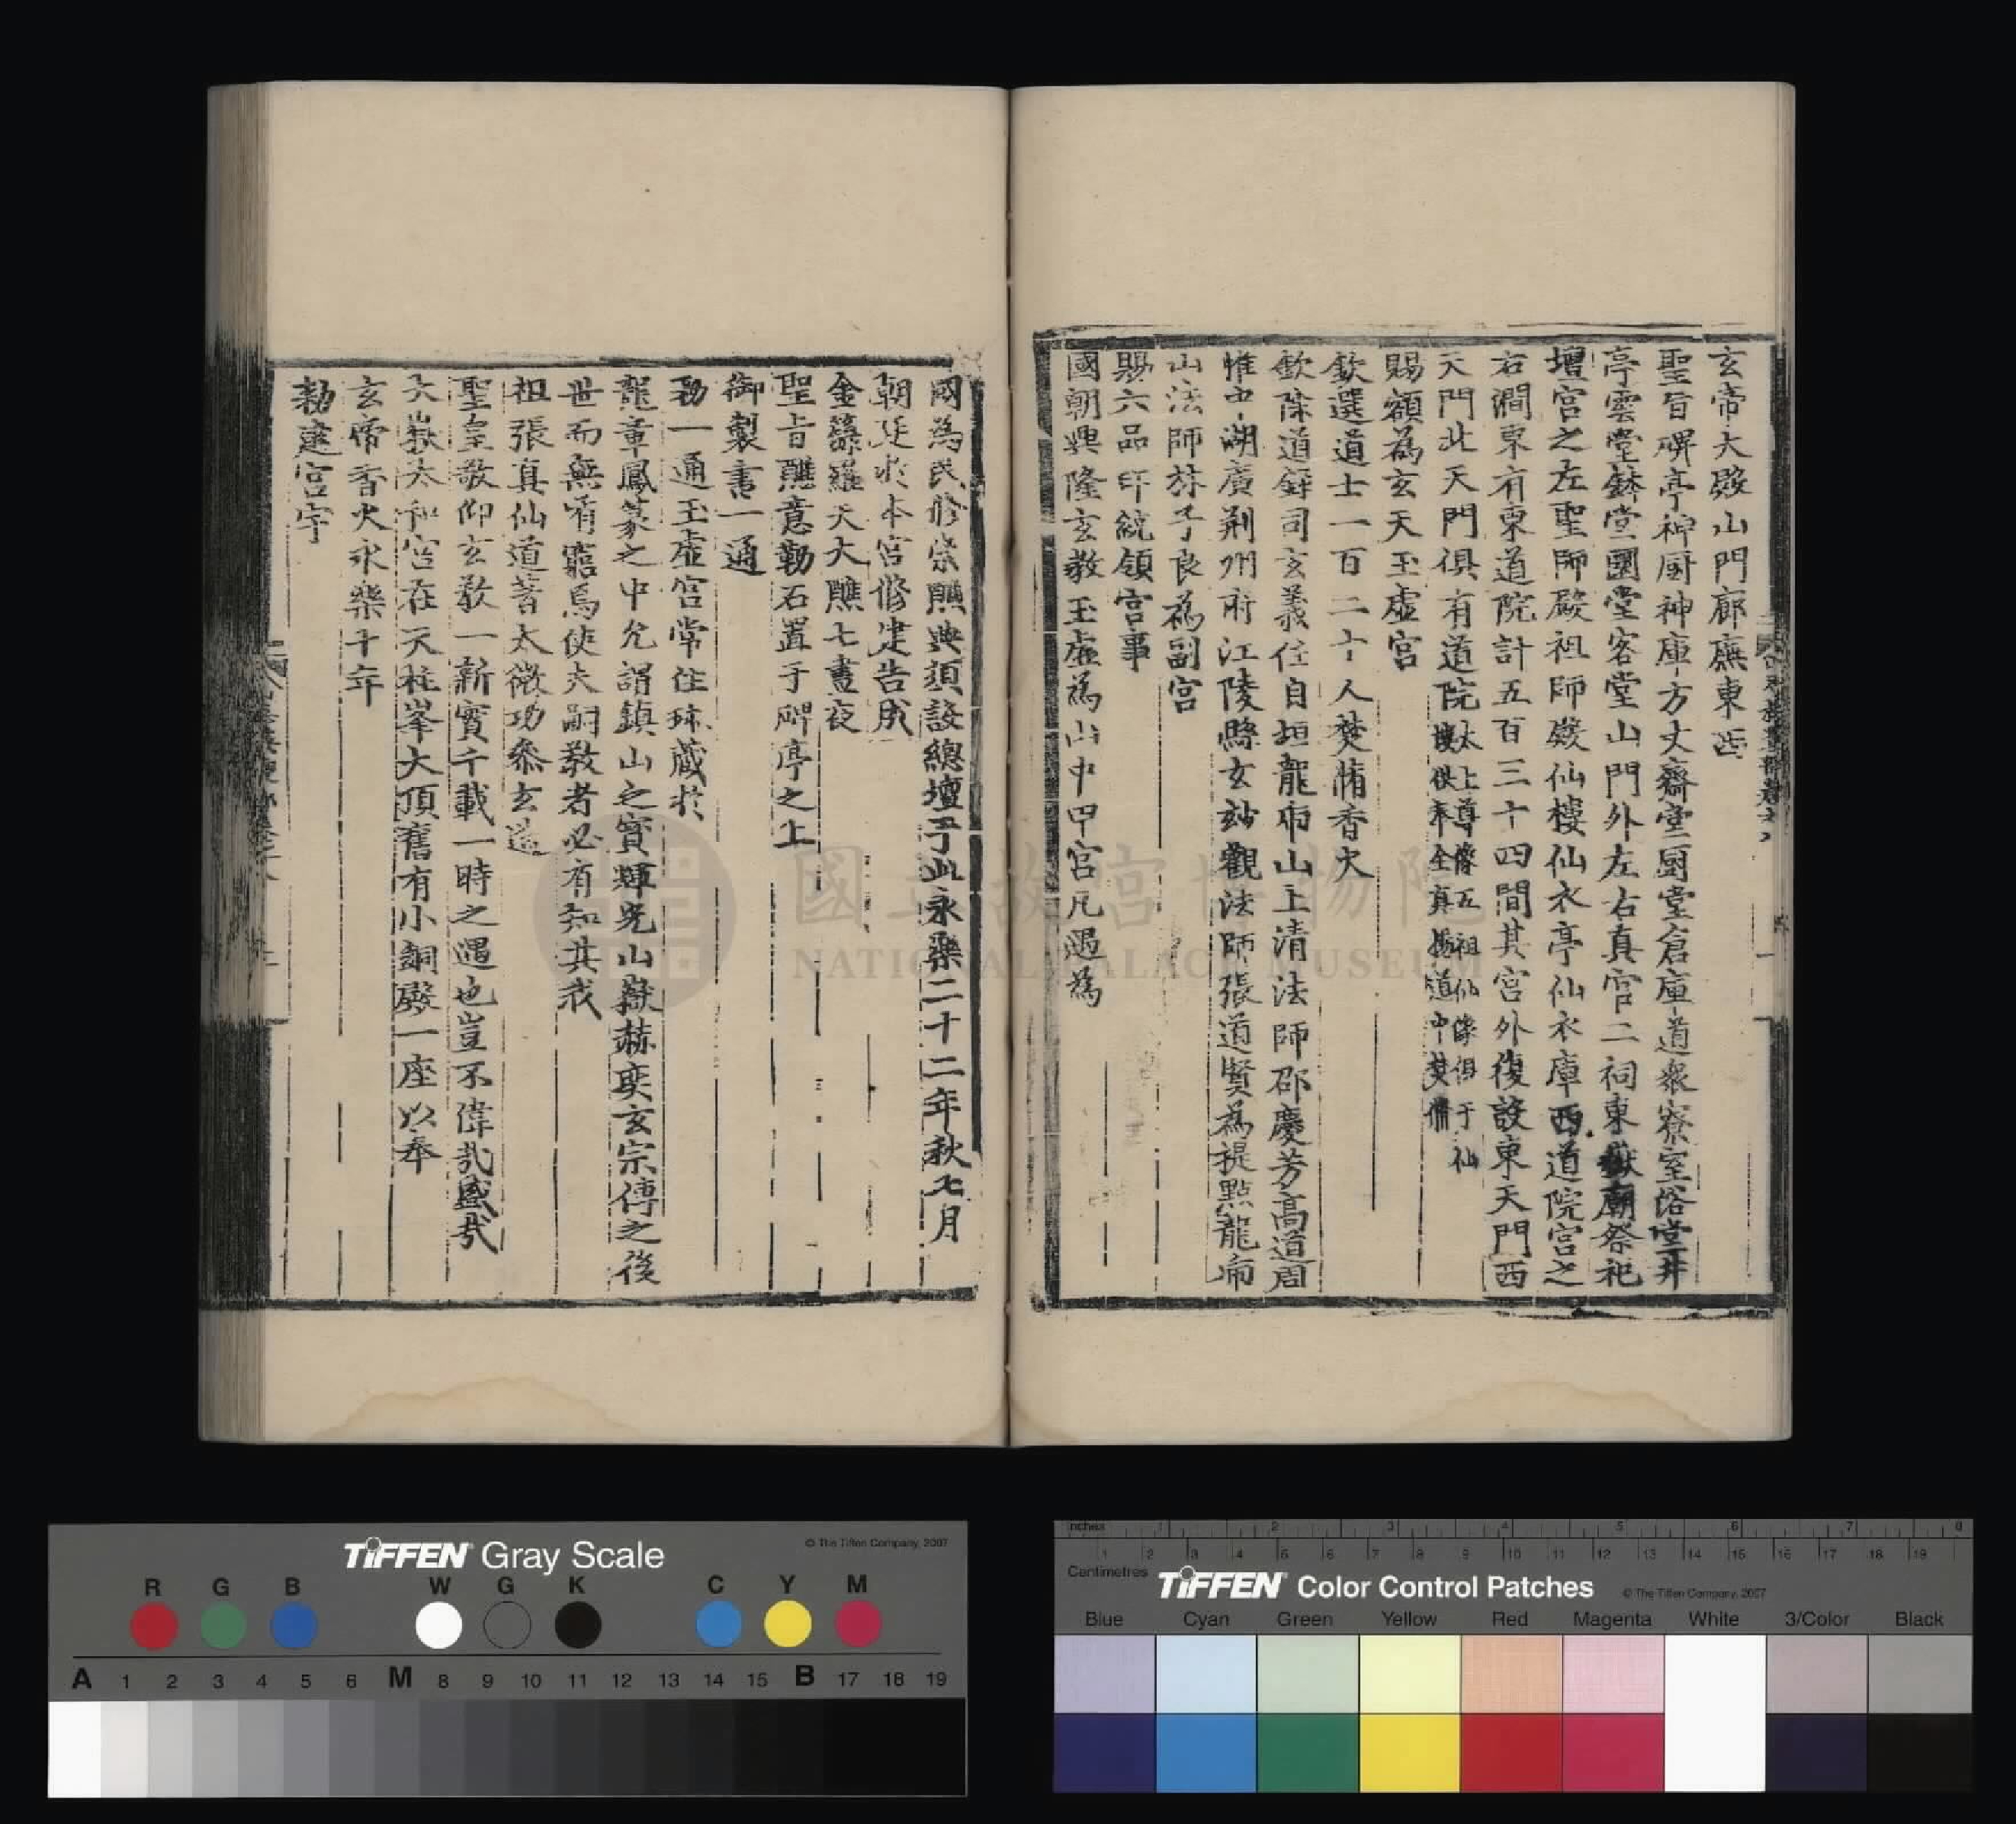 玄帝大殿山門廊廡東西
聖旨碑亭神厨神庫方丈齋堂厨堂倉庫道衆寮室浴堂井
亭雲堂鉢堂圜堂客堂山門外左右真官二祠東嶽廟祭祀
壇宫之左聖師殿祖師殿仙樓仙衣亭仙衣庫西道院宫之
右澗東有東道院計五百三十四間其宫外復設東天門西
天門北天門俱有道院太上尊像五祖仙像俱于仙
樓供奉全真道中焚脩
賜額為玄天玉虛宫
欽選道士一百二十人焚脩香火
欽除道録司玄義任自垣龍虎山上清法師邵慶芳高道周
惟中湖廣荆州府江陵縣玄妙觀法師張道賢為提點龍虎
山法師林子良為副宫
賜六品印統領宫事
國朝興隆玄教玉虛為山中甲宫凡遇為
國為民修崇醮典須設總壇于此永樂二十二年秋七月
朝廷於本宫修建告成
金籙羅天大醮七晝夜
聖旨醮意勒石置于碑亭之上
御製書一通
勑一通玉虛宫常住珎藏於
龍章鳳篆之中允謂鎮山之寳輝光山嶽赫奕玄宗傳之後
世而無有窮焉使夫嗣教者必有知其我
祖張真仙道著太微功叅玄造
聖皇敬仰玄教一新實千載一時之遇也豈不偉哉盛哉
大嶽太和宫在天柱峯大頂舊有小銅殿一座以奉
玄帝香火永樂十年
勑建宫宇
國立故宮博物院
NATIONAL PALACE MUSEUM
TIFFEN Gray Scale
© The Tiffen Company, 2007
R G B W G K C Y M
A 1 2 3 4 5 6 M 8 9 10 11 12 13 14 15 B 17 18 19
Inches 1 2 3 4 5 6 7 8
Centimetres 1 2 3 4 5 6 7 8 9 10 11 12 13 14 15 16 17 18 19
TIFFEN Color Control Patches
© The Tiffen Company, 2007
Blue Cyan Green Yellow Red Magenta White 3/Color Black